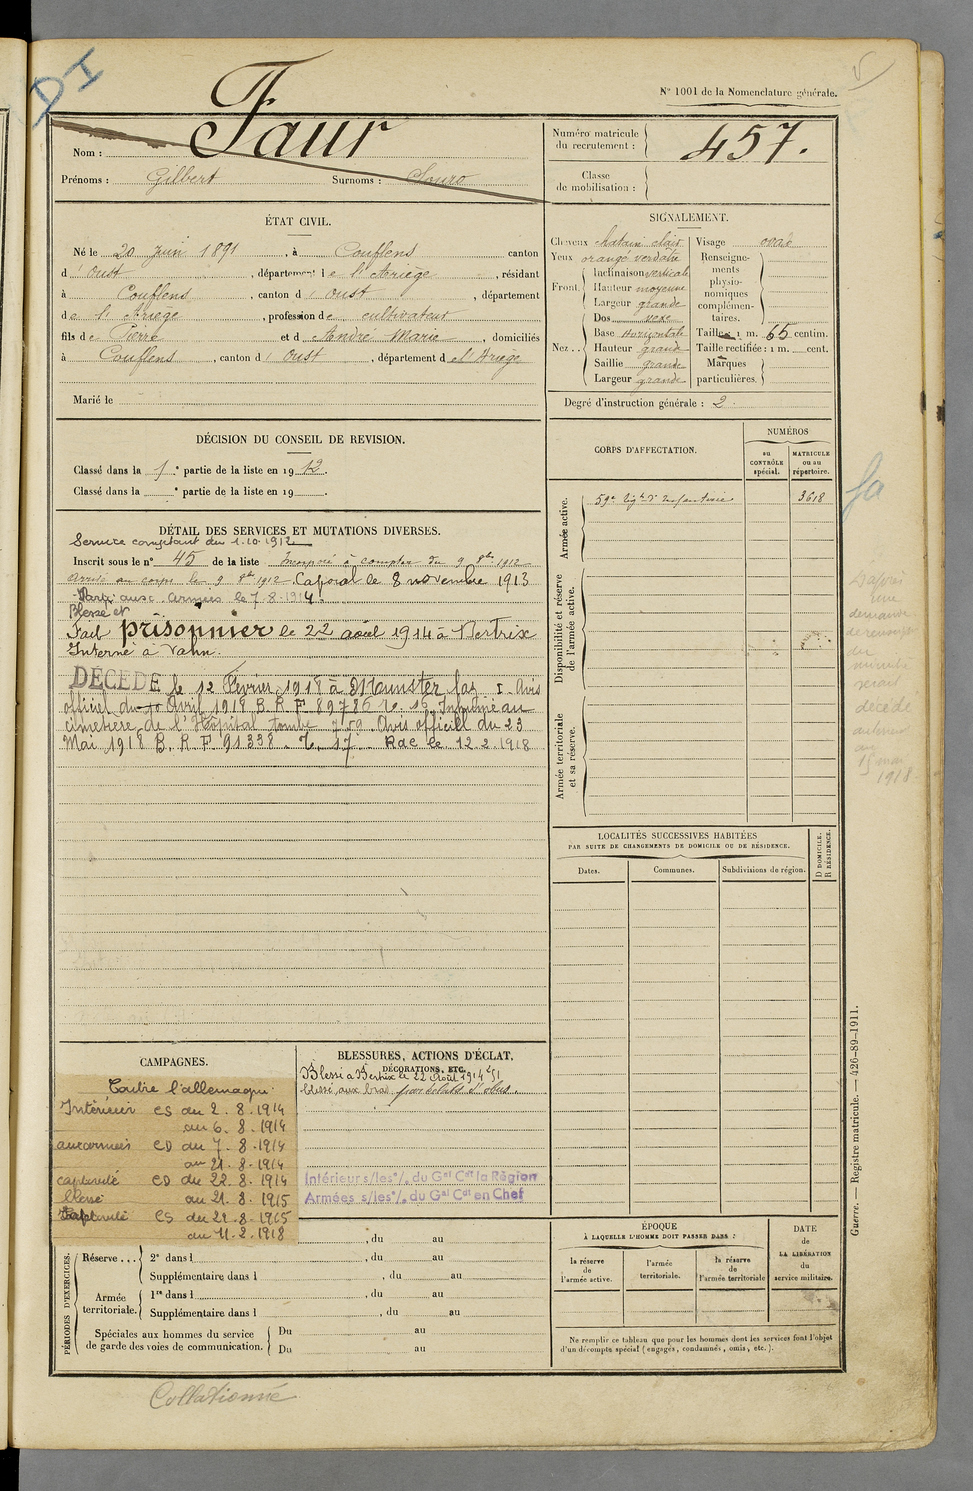 DI
N° 1001 de la Nomenclature générale.
Nom : Faur
Prénoms : Gilbert Surnoms : Souro
Numéro matricule du recrutement : 457.
Classe de mobilisation :
ÉTAT CIVIL.
Né le 20 juin 1891, à Couflens canton
d'Oust, département de l'Ariège, résidant
à Couflens, canton d'Oust, département
de l'Ariège, profession de cultivateur
fils de Pierre et d'André Marie, domiciliés
à Couflens, canton d'Oust, département de l'Ariège
Marié le
SIGNALEMENT.
Cheveux chatain clair
Yeux orangé verdatre
Front Inclinaison verticale
Hauteur moyenne
Largeur grande
Nez Dos vexe
Base Horizontale
Hauteur grand
Saillie grande
Largeur grande
Visage ovale
Renseignements physionomiques complémentaires.
Taille : 1 m. 65 centim.
Taille rectifiée : 1 m. cent.
Marques particulières.
Degré d'instruction générale : 2.
DÉCISION DU CONSEIL DE REVISION.
Classé dans la 1e partie de la liste en 1912.
Classé dans la e partie de la liste en 19 .
CORPS D'AFFECTATION.
NUMÉROS
au CONTRÔLE spécial.
MATRICULE ou au répertoire.
Armée active.
59e Rigt d'Infanterie 3618
Disponibilité et réserve de l'armée active.
Armée territoriale et sa réserve.
DÉTAIL DES SERVICES ET MUTATIONS DIVERSES.
Service comptant du 1.10.1912
Inscrit sous le n° 45 de la liste Incorporé à compter du 9 8bre 1912
arrivé au corps le 9 8bre 1912. Caporal le 8 novembre 1913
Parti aux armées le 7.8.1914.
Blessé et
Fait prisonnier le 22 août 1914 à Bertrix
Interné à Vahn.
DÉCÉDÉ le 12 Février 1918 à Munster lag I Avis
officiel du 10 Avril 1918 B.R.F 89786 R. 16 Inhumé au
cimetière de l'Hôpital tombe 759. Avis officiel du 23
Mai 1918 B.R.F 91338. R. 17 Rac le 12.2.1918
D'après
une
demande
de renseigt
du
ministre
serait
décédé
antérieurt
au
15 mai
1918
LOCALITÉS SUCCESSIVES HABITÉES
PAR SUITE DE CHANGEMENTS DE DOMICILE OU DE RÉSIDENCE.
Dates. Communes. Subdivisions de région. D DOMICILE. R RÉSIDENCE.
CAMPAGNES.
Contre l'allemagne.
Intérieur CS du 2.8.1914
au 6.8.1914
aux armées CD du 7.8.1914
au 21.8.1914
captivité CD du 22.8.1914
blessé au 21.8.1915
Captivité CS du 22.8.1915
au 11.2.1918
BLESSURES, ACTIONS D'ÉCLAT,
DÉCORATIONS, ETC.
Blessé à Bertrix le 22 Août 1914
blessé aux bras par éclats d'obus.
Intérieur s/les °/. du Gal Cdt la Région
Armées s/les °/. du Gal Cdt en Chef
PÉRIODES D'EXERCICES.
, du au
Réserve . . . 2e dans l , du au
Supplémentaire dans l , du au
Armée territoriale. 1re dans l , du au
Supplémentaire dans l , du au
Spéciales aux hommes du service de garde des voies de communication. Du au
Du au
ÉPOQUE
À LAQUELLE L'HOMME DOIT PASSER DANS :
la réserve de l'armée active.
l'armée territoriale.
la réserve de l'armée territoriale
DATE de LA LIBÉRATION du service militaire.
Ne remplir ce tableau que pour les hommes dont les services font l'objet
d'un décompte spécial (engagés, condamnés, omis, etc.).
Guerre. — Registre matricule. — 426-89-1911.
Collationné